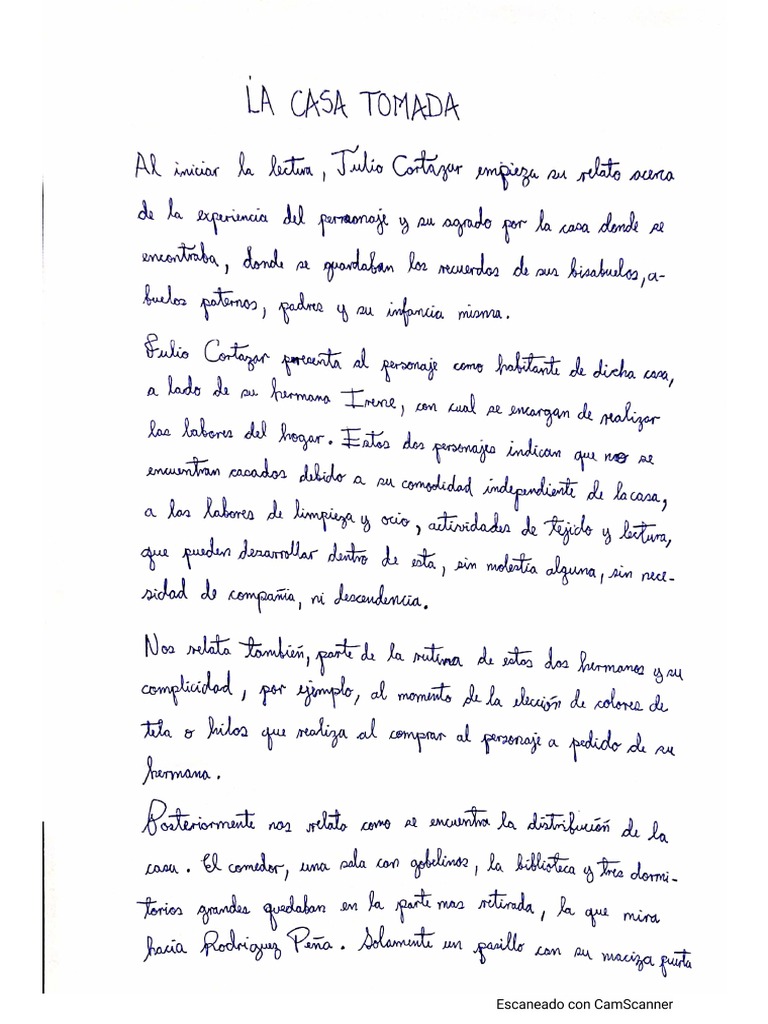 LA CASA TOMADA
Al iniciar la lectura, Julio Cortázar empieza su relato acerca
de la experiencia del personaje y su agrado por la casa donde se
encontraba, donde se guardaban los recuerdos de sus bisabuelos, a-
buelos paternos, padres y su infancia misma.
Julio Cortazar presenta al personaje como habitante de dicha casa,
a lado de su hermana Irene, con cual se encargan de realizar
las labores del hogar. Estos dos personajes indican que no se
encuentran casados debido a su comodidad independiente de la casa,
a las labores de limpieza y ocio, actividades de tejido y lectura,
que pueden desarrollar dentro de esta, sin molestia alguna, sin nece-
sidad de compañia, ni descendencia.
Nos relata también, parte de la rutina de estos dos hermanos y su
complicidad, por ejemplo, al momento de la elección de colores de
tela o hilos que realiza al comprar al personaje a pedido de su
hermana.
Posteriormente nos relato como se encuentra la distribución de la
casa. El comedor, una sala con gobelinos, la biblioteca y tres dormi-
torios grandes quedaban en la parte mas retirada, la que mira
hacia Rodriguez Peña. Solamente un pasillo con su maciza puerta
Escaneado con CamScanner